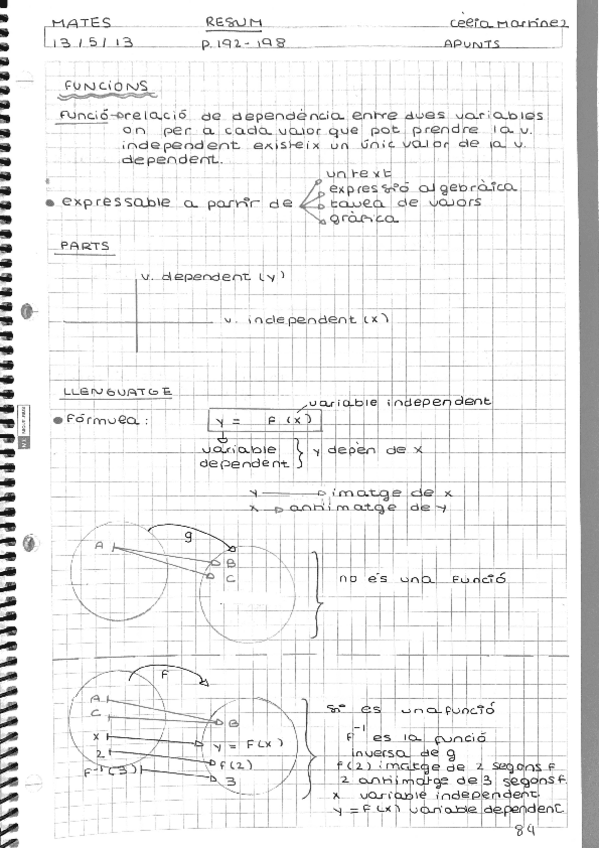 MATES RESUM Cèlia Martínez
13/5/13 P.192-198 APUNTS
FUNCIONS
Funció→relació de dependència entre dues variables
on per a cada valor que pot prendre la v.
independent existeix un únic valor de la v.
dependent.
un text
expressió algebràica
• expressable a partir de taula de valors
gràfica
PARTS
v. dependent (y)
v. independent (x)
LLENGUATGE
variable independent
• Fórmula: y = F(x)
variable
dependent } y depèn de x
y → imatge de x
x → antiimatge de y
g
A B
C
no és una Funció
F
A
C B
x y = F(x)
2 f(2)
F⁻¹(3) 3
Sí és una funció
F⁻¹ és la funció
inversa de g
f(2) imatge de 2 segons F
2 antiimatge de 3 segons F.
x variable independent
y = F(x) variable dependent
84